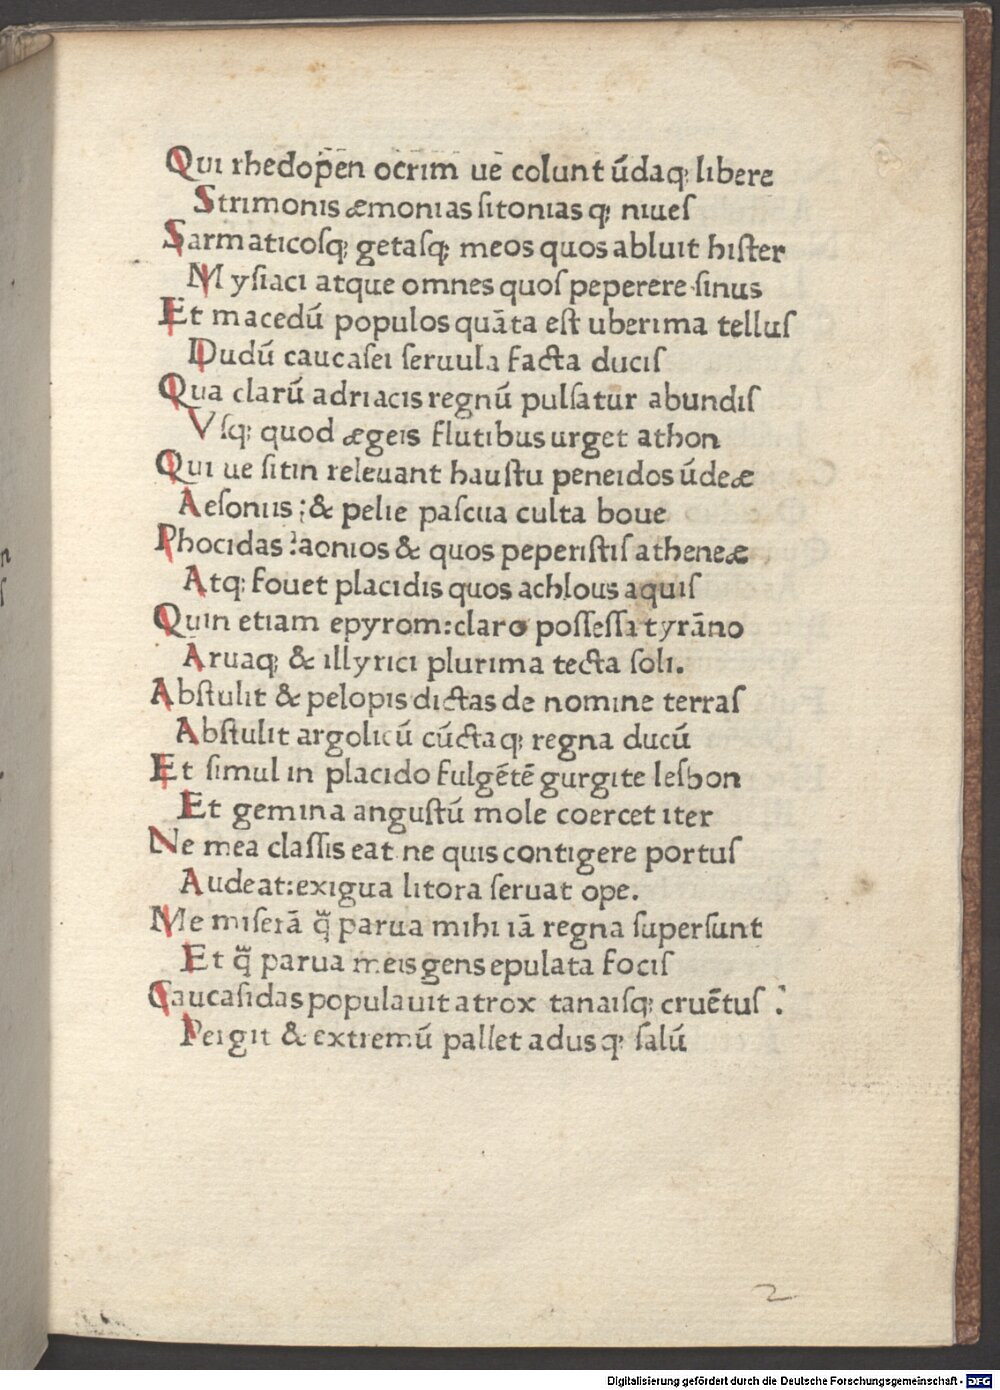 Qui rhedop̄en ocrim ue colunt ūdaq; libere
Strimonis æmonias ſitonias q; niueſ
Sarmaticoſq; getaſq; meos quos abluit hiſter
Myſiaci atque omnes quoſ peperere ſinus
Et macedū populos quāta eſt uberima telluſ
Dudū caucaſei ſeruula facta duciſ
Qua clarū adriacis regnū pulſatur abundiſ
Vſq; quod ægeis flutibus urget athon
Qui ue ſitin releuant hauſtu peneidos ūdeæ
Aeſoniis ;& pelie paſcua culta boue
Phocidas :aonios & quos peperiſtiſ atheneæ
Atq; fouet placidis quos achlous aquiſ
Quin etiam epyrom:claro poſſeſſa tyrāno
Aruaq; & illyrici plurima tecta ſoli.
Abſtulit & pelopis dictas de nomine terraſ
Abſtulit argolicū cūctaq; regna ducū
Et ſimul in placido fulgētē gurgite leſbon
Et gemina anguſtū mole coercet iter
Ne mea claſſis eat ne quis contigere portuſ
Audeat:exigua litora ſeruat ope.
Me miſerā q̄ parua mihi iā regna ſuperſunt
Et q̄ parua meis gens epulata fociſ
Caucaſidas populauit atrox tanaiſq; cruētuſ :
Pergit & extremū pallet adus q; ſalū
2
Digitalisierung gefördert durch die Deutsche Forschungsgemeinschaft - DFG